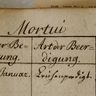 Mortui
er Be= Art der Beer=
ung. digung.
Januar. Leichenpredigt.